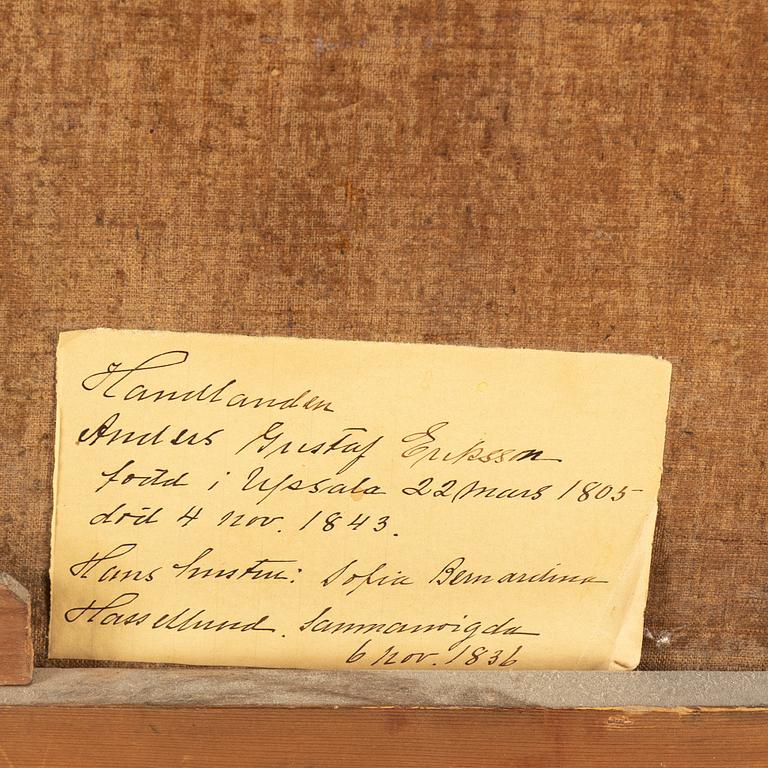 Handlanden
Anders Gustaf Eriksson
född i Upsala 22 mars 1805
död 4 nov. 1843.
Hans hustru: Sofia Bernardina
Hassellund. Sammanvigda
6 nov. 1836